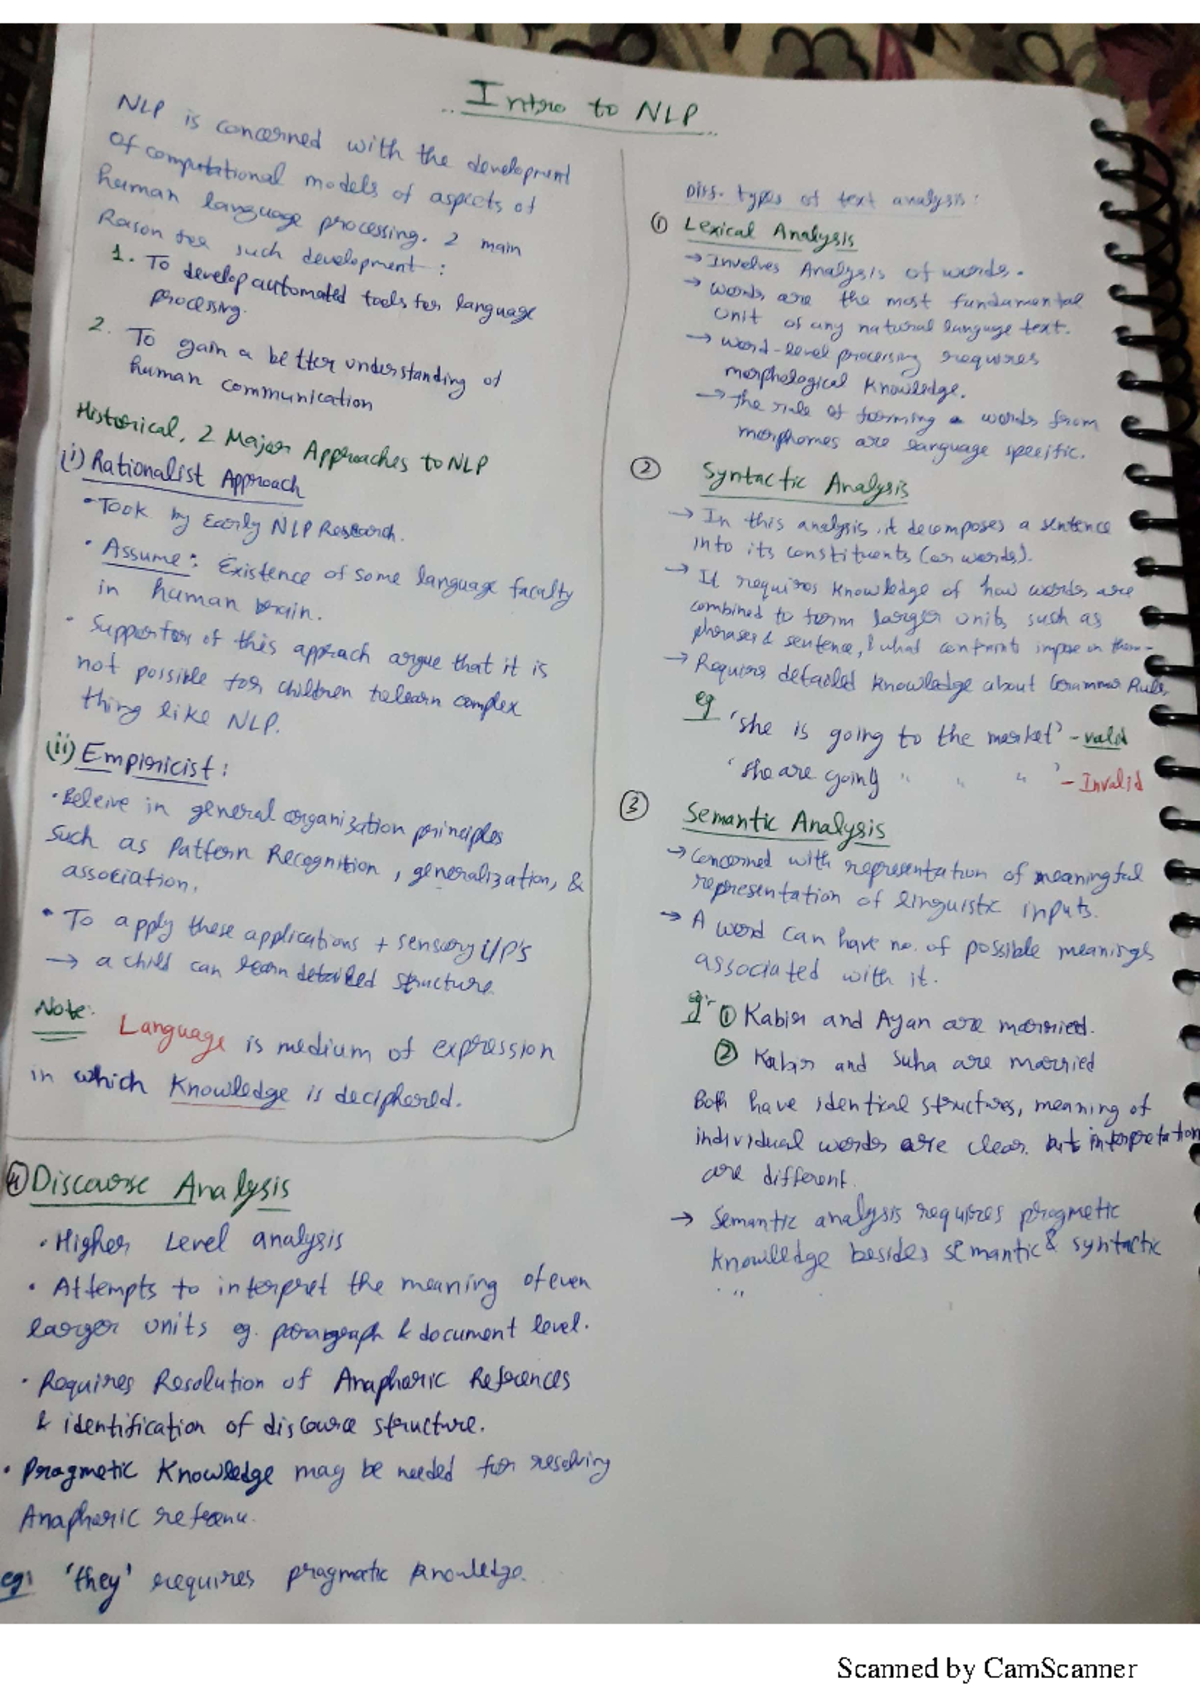 Intro to NLP
NLP is concerned with the development
of computational models of aspects of
human language processing. 2 main
Reason for such development :
1. To develop automated tools for language
processing.
2. To gain a better understanding of
human communication
Historical, 2 Major Approaches to NLP
(i) Rationalist Approach
• Took by Early NLP Research.
• Assume : Existence of some language faculty
in human brain.
• Supporters of this approach argue that it is
not possible for children to learn complex
thing like NLP.
(ii) Empiricist :
• Beleive in general organization principles
such as Pattern Recognition, generalization, &
association.
• To apply these applications + sensory i/p's
→ a child can learn detailed structure.
Note: Language is medium of expression
in which Knowledge is deciphered.
Diff. types of text analysis :
① Lexical Analysis
→ Involves Analysis of words.
→ words are the most fundamental
unit of any natural language text.
→ word-level processing requires
morphological knowledge.
→ the rule of forming words from
morphemes are language specific.
② Syntactic Analysis
→ In this analysis, it decomposes a sentence
into its constituents (or words).
→ It requires knowledge of how words are
combined to form larger units such as
phrases & sentence, & what constraints impose on them.
→ Requires detailed knowledge about Grammar Rules
eg
'She is going to the market' - valid
'She are going " " " ' - Invalid
③ Semantic Analysis
→ Concerned with representation of meaningful
representation of linguistic inputs.
→ A word can have no. of possible meanings
associated with it.
eg:- ① Kabir and Ayan are married.
② Kabir and Suha are married
Both have identical structures, meaning of
individual words are clear but interpretation
are different.
→ Semantic analysis requires pragmetic
knowledge besides semantic & syntactic
"
④ Discourse Analysis
• Higher Level analysis
• Attempts to interpret the meaning of even
larger units eg. paragraph & document level.
• Requires Resolution of Anaphoric References
& identification of discource structure.
• Pragmetic Knowledge may be needed for resolving
Anaphoric
eg: 'they' requires pragmatic knowledge.
Scanned by CamScanner